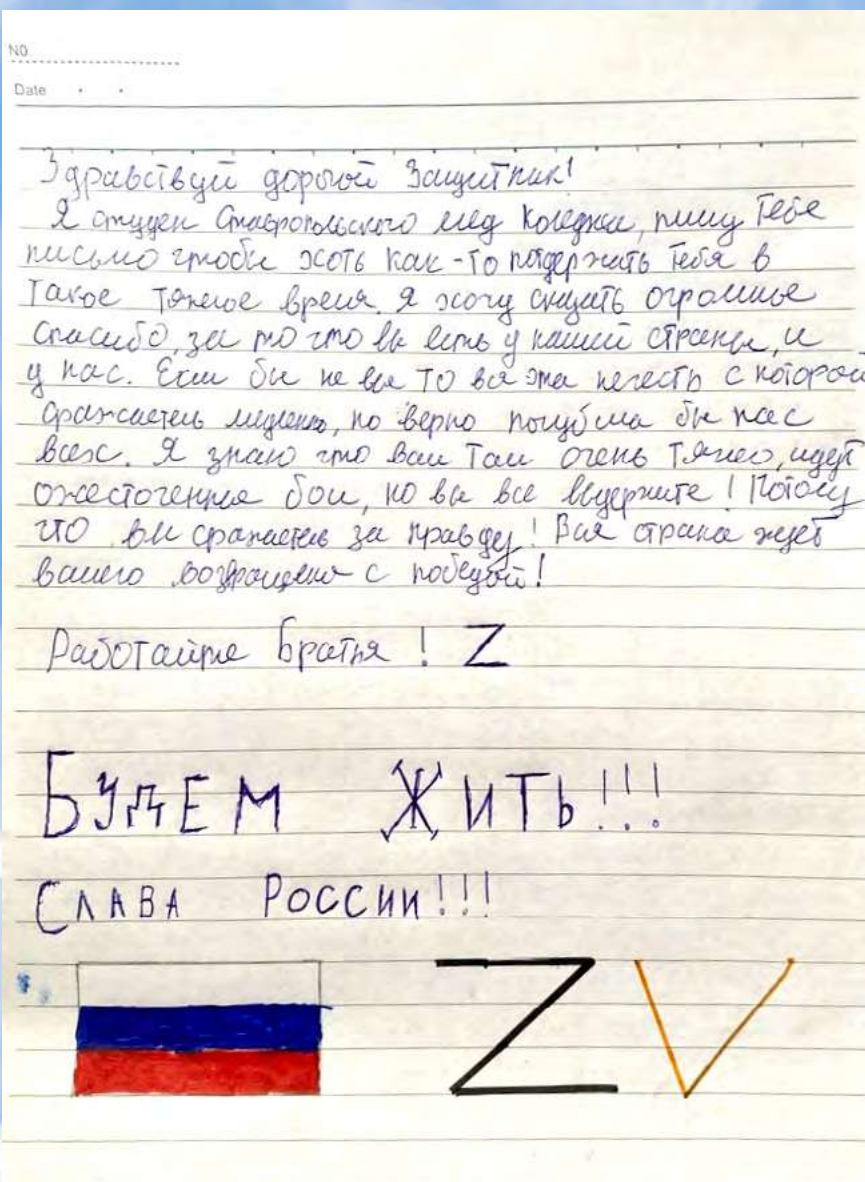 NO
Date
Здравствуй дорогой Защитник!
Я студен Ставропольского мед колледжа, пишу Тебе
письмо чтобы хоть как-то поддержать тебя в
Такое тяжелое время. Я хочу сказать огромное
спасибо, за то что вы есть у нашей страны, и
у нас. Если бы не вы то вся эта нечесть с которой
сражаетесь медленно, но верно погубила бы нас
всех. Я знаю что вам там очень тяжело, идут
ожесточенные бои, но вы все выдержите! Потому
что вы сражаетесь за правду! Вся страна ждет
вашего возвращения с победой!
Работайте Братья! Z
БУДЕМ ЖИТЬ!!!
СЛАВА РОССИИ!!!
Z V